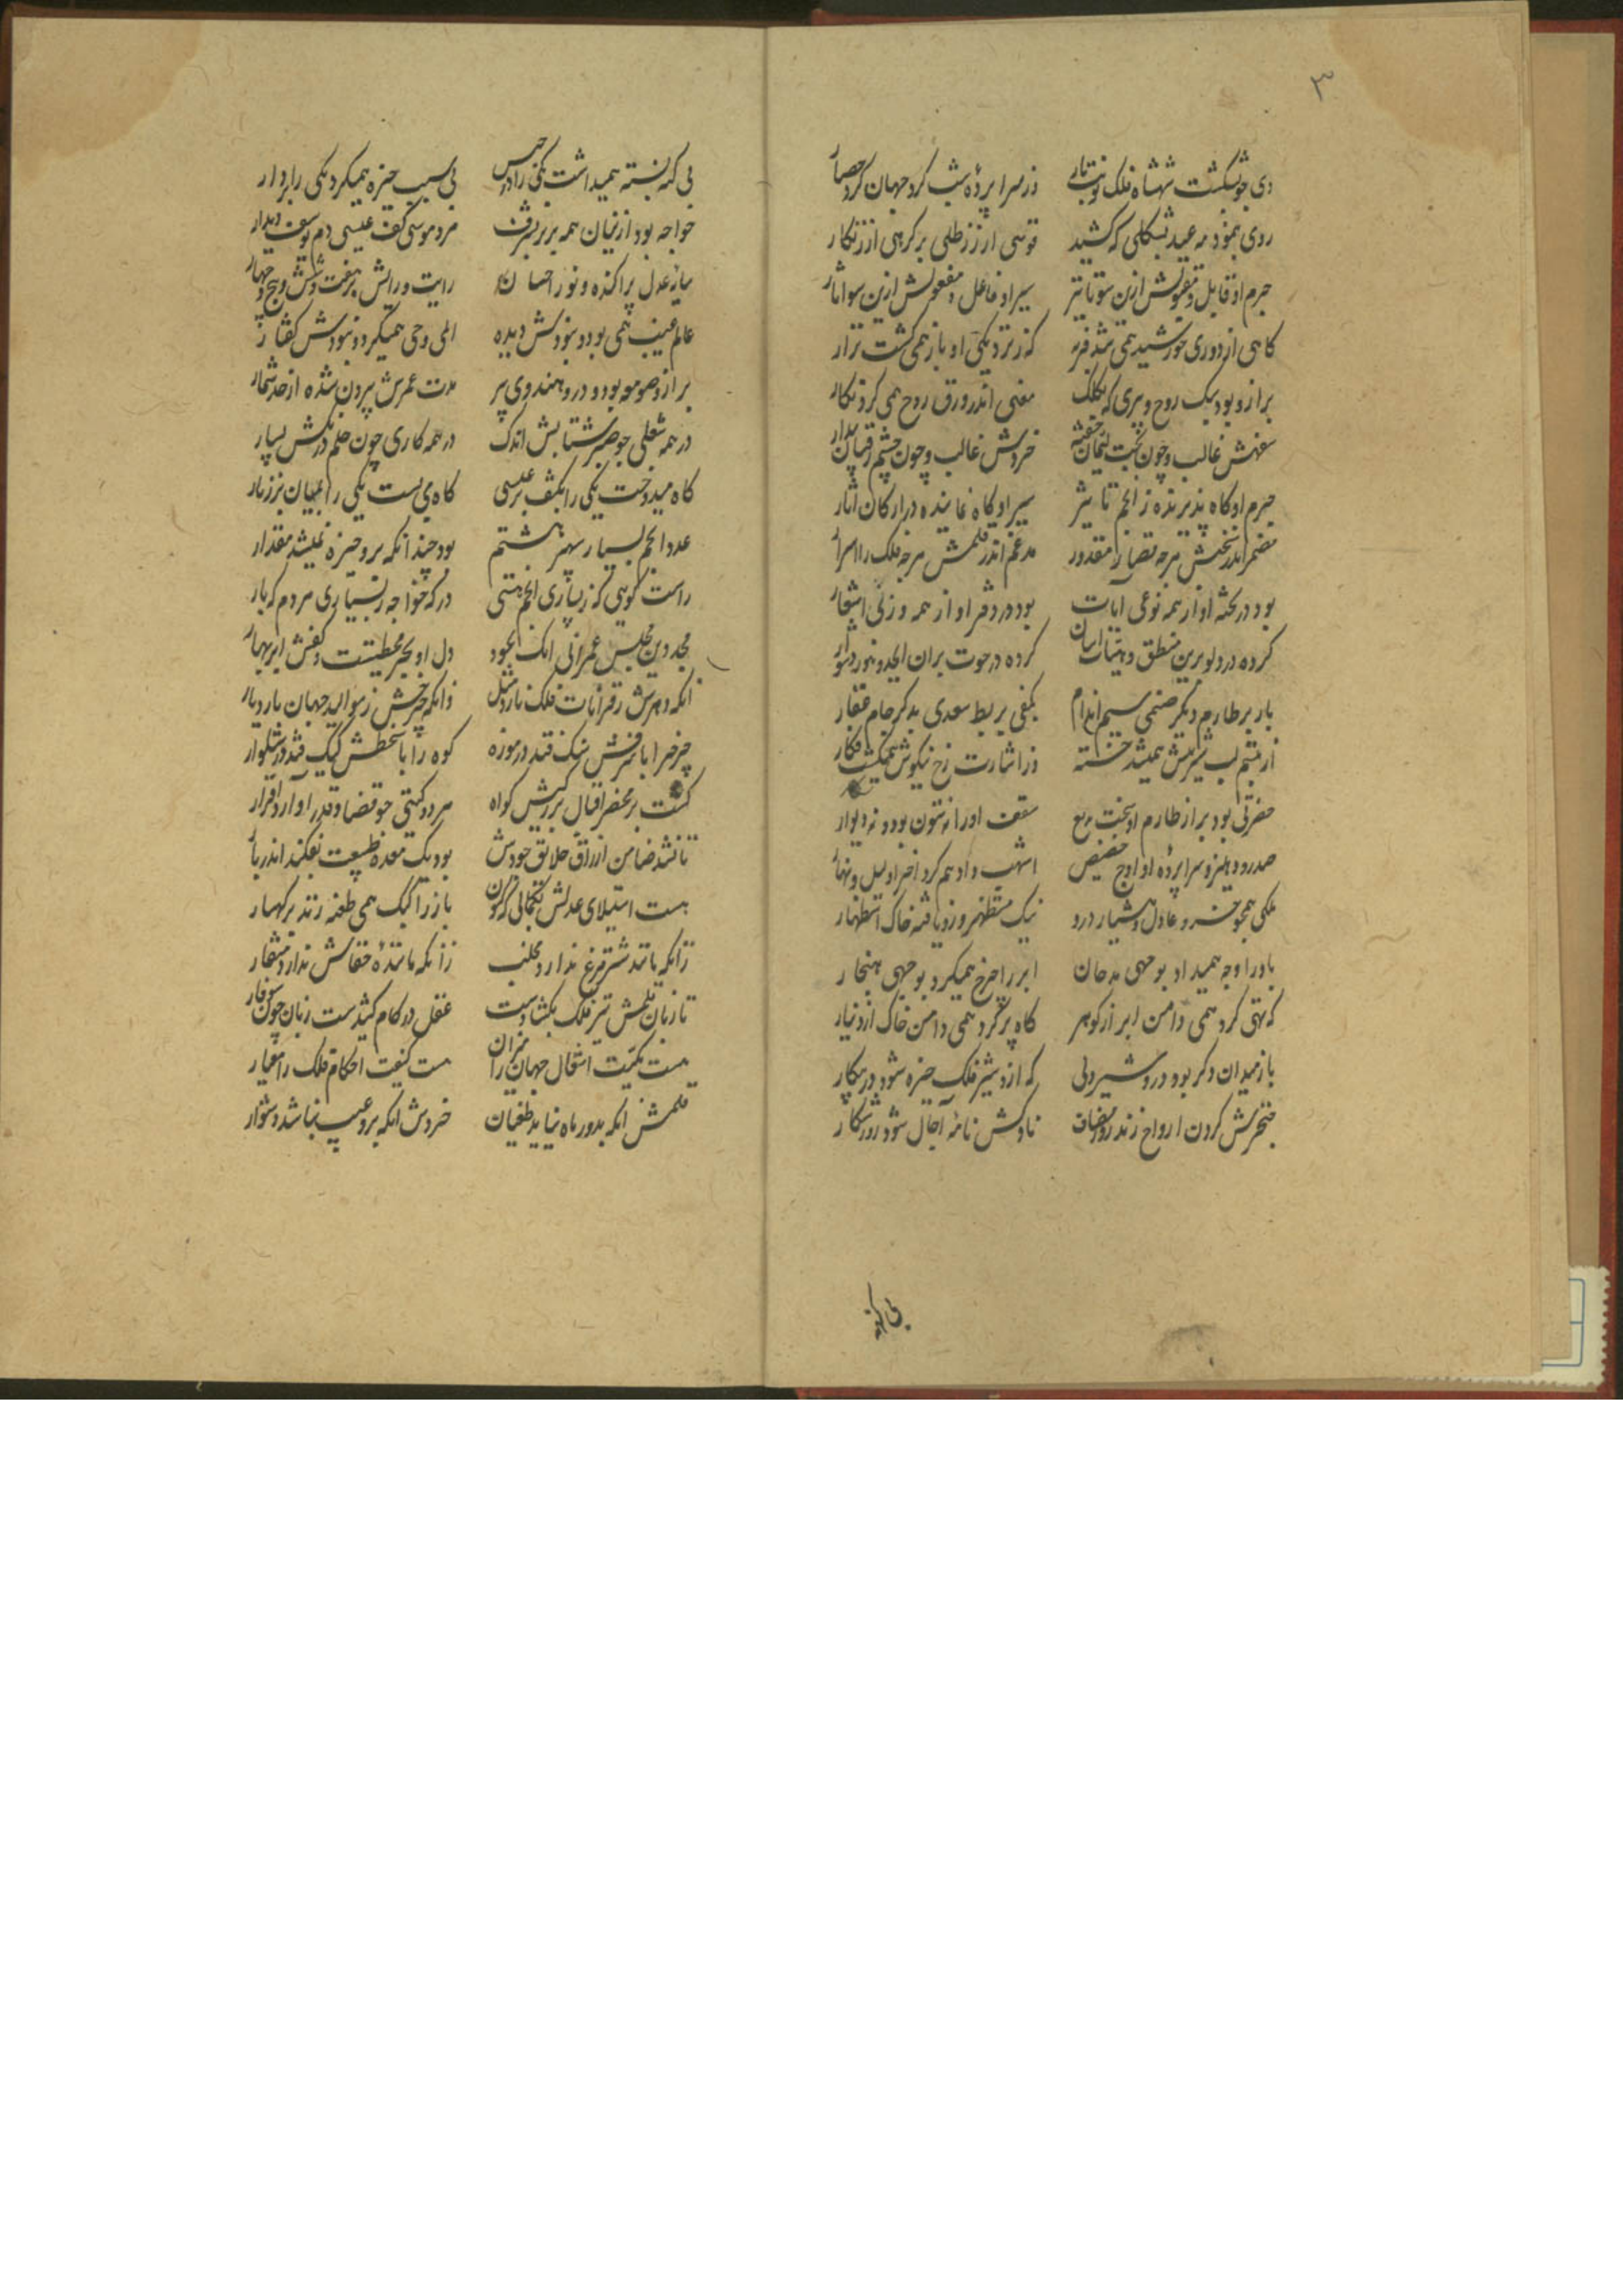 ۳
دی چو بشکست شهنشاه فلک نوبت بار وز سرا پرده شب کرد جهان کرد حصار
روی بنمود مه عید بشکلی که کشید قوسی از زر طلی بر کرهی از زنکار
جرم او قابل و مقبولش ازین سو تاثیر سیر او فاعل و مفعولش ازین سو اثار
کاهی از دوری خورشید همی شد فربه که ز نزدیکی او باز همی کشت نزار
برازو بود سبک روح دبیری که بکلک معنی اندر ورق روح همی کرد نکار
سفهش غالب و چون بخت لئیمان خفته خردش غالب و چون چشم رقیبان بیدار
جرم او کاه پذیرنده ز انجم تاثیر سیر او کاه نماینده در ارکان اثار
مضمر اندر سخنش هرچه قضا را مقدور مدغم اندر قلمش هرچه فلک را اسرار
بود در بحثه او از همه نوعی ایات بود در دفتر او از همه وزنی اشعار
کرده در دلو برین منطق و هیئات اسان کرده در حوت بران ابجد و هوز دشوار
باز بر طارم دیکر صنمی سیم اندام بکفی بربط سغدی بدکر جام عقار
از تبسم لب شیرینش همیشد خسته وز اشارت رخ نیکوش همیکشت فکار
حضرتی بود بر از طارم او سخت رفیع سقف او را نه ستون بود و نه دیوار
صدر و دهلیز و سرا پرده او اوج حضیض اشهب و ادهم کرد اخر او لیل و نهار
ملکی همچو خسرو عادل و هشیار درو نیک مستظهر وزو یافته خاک استظهار
باد را وجه همیداد بوجهی مدخان ابر را خرج همیکرد بوجهی هنجار
که تهی کرد همی دامن ابر از کوهر کاه پر کرد همی دامن خاک از دینار
باز میدان دکر بود درو شیر دلی که ازو شیر فلک خیره شود در پیکار
خنجرش کردن ارواح زند روز مصاف ناوکش نامه آجال شود روز شکار
بی کنه
بی کنه بسته همیداشت یکی را در حبس بی سبب خیره همیکرد یکی را بردار
خواجه بود ازینان همه برتر بشرف مرد موسی کف عیسی دم یوسف دیدار
سایه عدل پراکنده و نور احسان رایت و رایش بر هفت و شش و پنج و چهار
عالم غیب همی بود و نبودش دیده املی وحی همیکرد و نبودش کفتار
برازو صومعه بود و درو هندوی پیر مدت عمرش بیرون شده از حد شمار
در همه شغلی چو صبر شتابش اندک در همه کاری چون حلم درنکش بسیار
کاه میدوخت یکی را بکتف بر عیسی کاه می بست یکی را بمیان بر زنار
عدد انجم بسیار سپهر هشتم بود چندانکه برو خیره نمیشد مقدار
راست کویی که ز بسیاری انجم هستی درکه خواجه ز بسیاری مردم که بار
مجد دین بو الحسن عمرانی انک بجود دل او بحر محیطست و کفش ابر بهار
آنکه دهرش ز قرانات فلک نارد مثل وانکه چرخش ز موالید جهان نارد یار
چرخ را با شرفش سنک فتد در موزه کوه را با سخطش کیک فتد در شلوار
کشت بر محضر اقبال بزرکیش کواه هر دو کیتی چو قضا و قدر اورد اقرار
تا نشد ضامن ارزاق خلایق جودش بود یک معده طبیعت نفکند اندر بار
هست استیلای عدلش بکمالی که کنون باز را کبک همی طعنه زند بر کهسار
زانکه ماننده شترمرغ ندارد مخلب زانکه ماننده خفاش ندارد منقار
تا زبان قلمش تیر فلک بکشادست عقل در کام کشیدست زبان چون سوفار
هست کمیت اثقال جهان را میزان هست کیفیت احکام فلک را معیار
قلمش انکه بدور ماه نیابد طغیان خردش انکه برو عیب نباشد دشوار